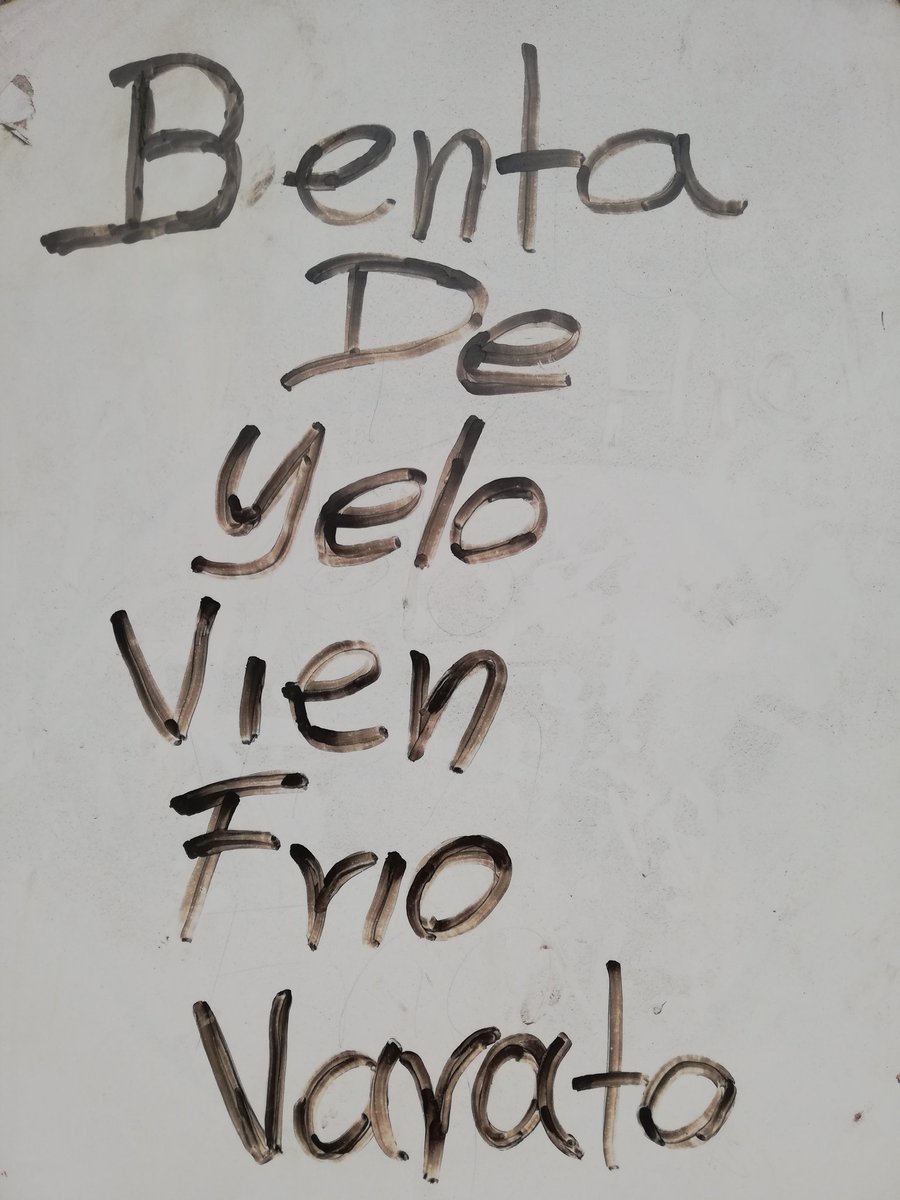 Benta
De
Yelo
Vien
Frio
Varato